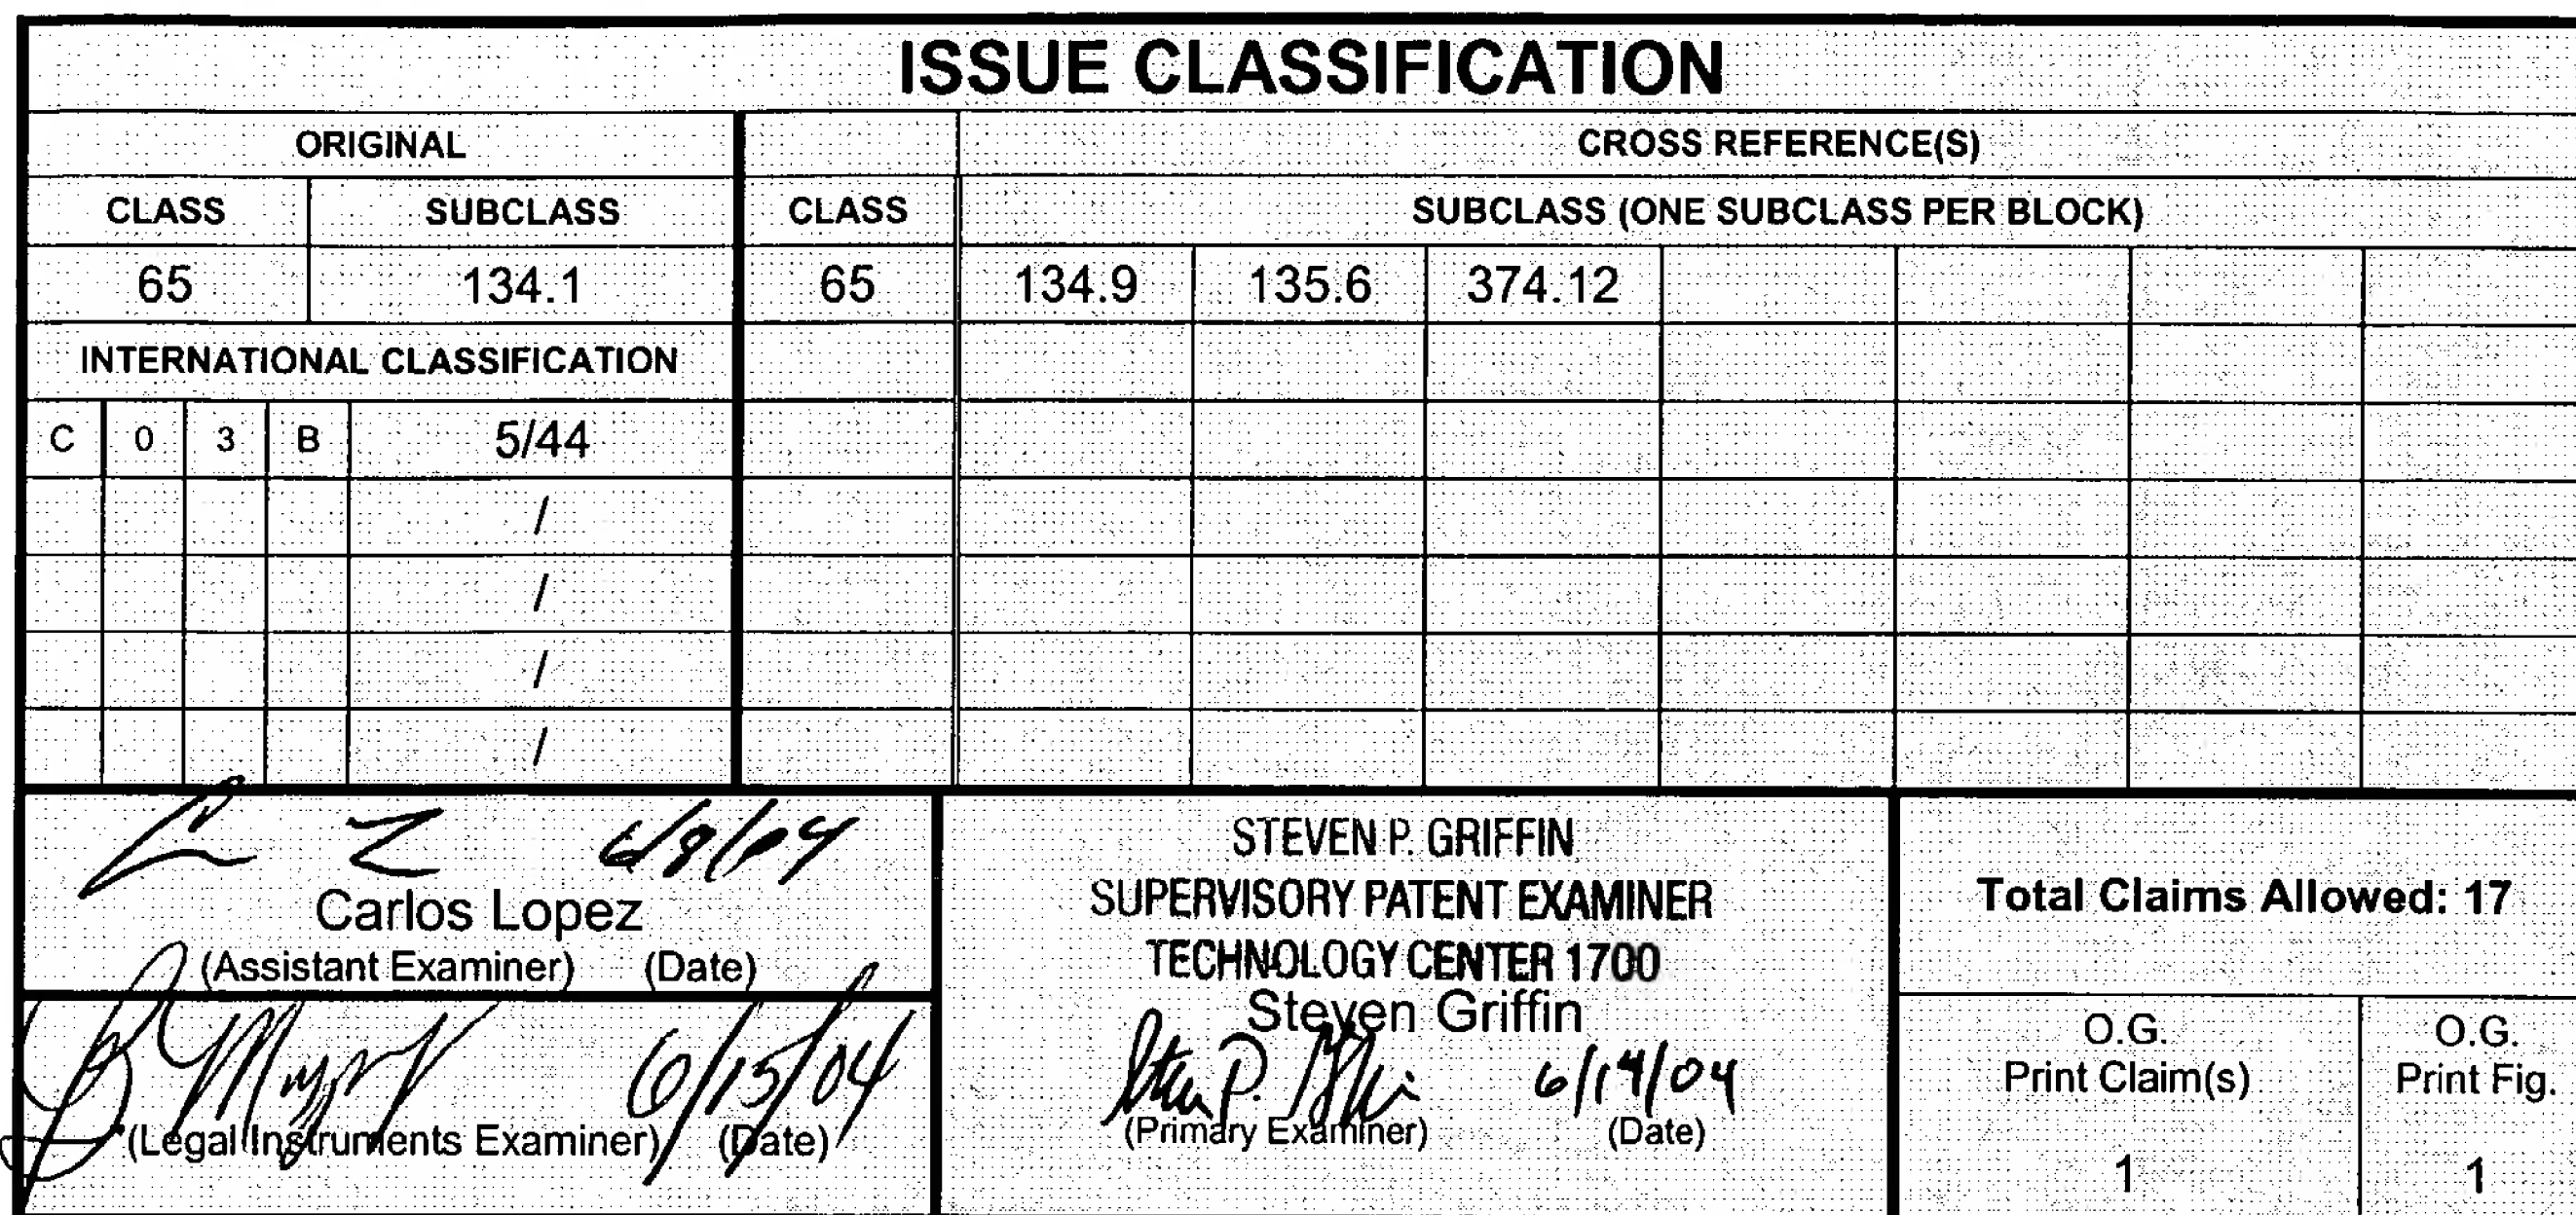 ISSUE CLASSIFICATION
ORIGINAL CROSS REFERENCE(S)
CLASS SUBCLASS CLASS SUBCLASS (ONE SUBCLASS PER BLOCK)
65 134.1 65 134.9 135.6 374.12
INTERNATIONAL CLASSIFICATION
C 0 3 B 5/44
/
/
/
/
6/8/04
Carlos Lopez
(Assistant Examiner) (Date)
6/15/04
(Legal Instruments Examiner) (Date)
STEVEN P. GRIFFIN
SUPERVISORY PATENT EXAMINER
TECHNOLOGY CENTER 1700
Steven Griffin
6/14/04
(Primary Examiner) (Date)
Total Claims Allowed: 17
O.G.
Print Claim(s)
1
O.G.
Print Fig.
1